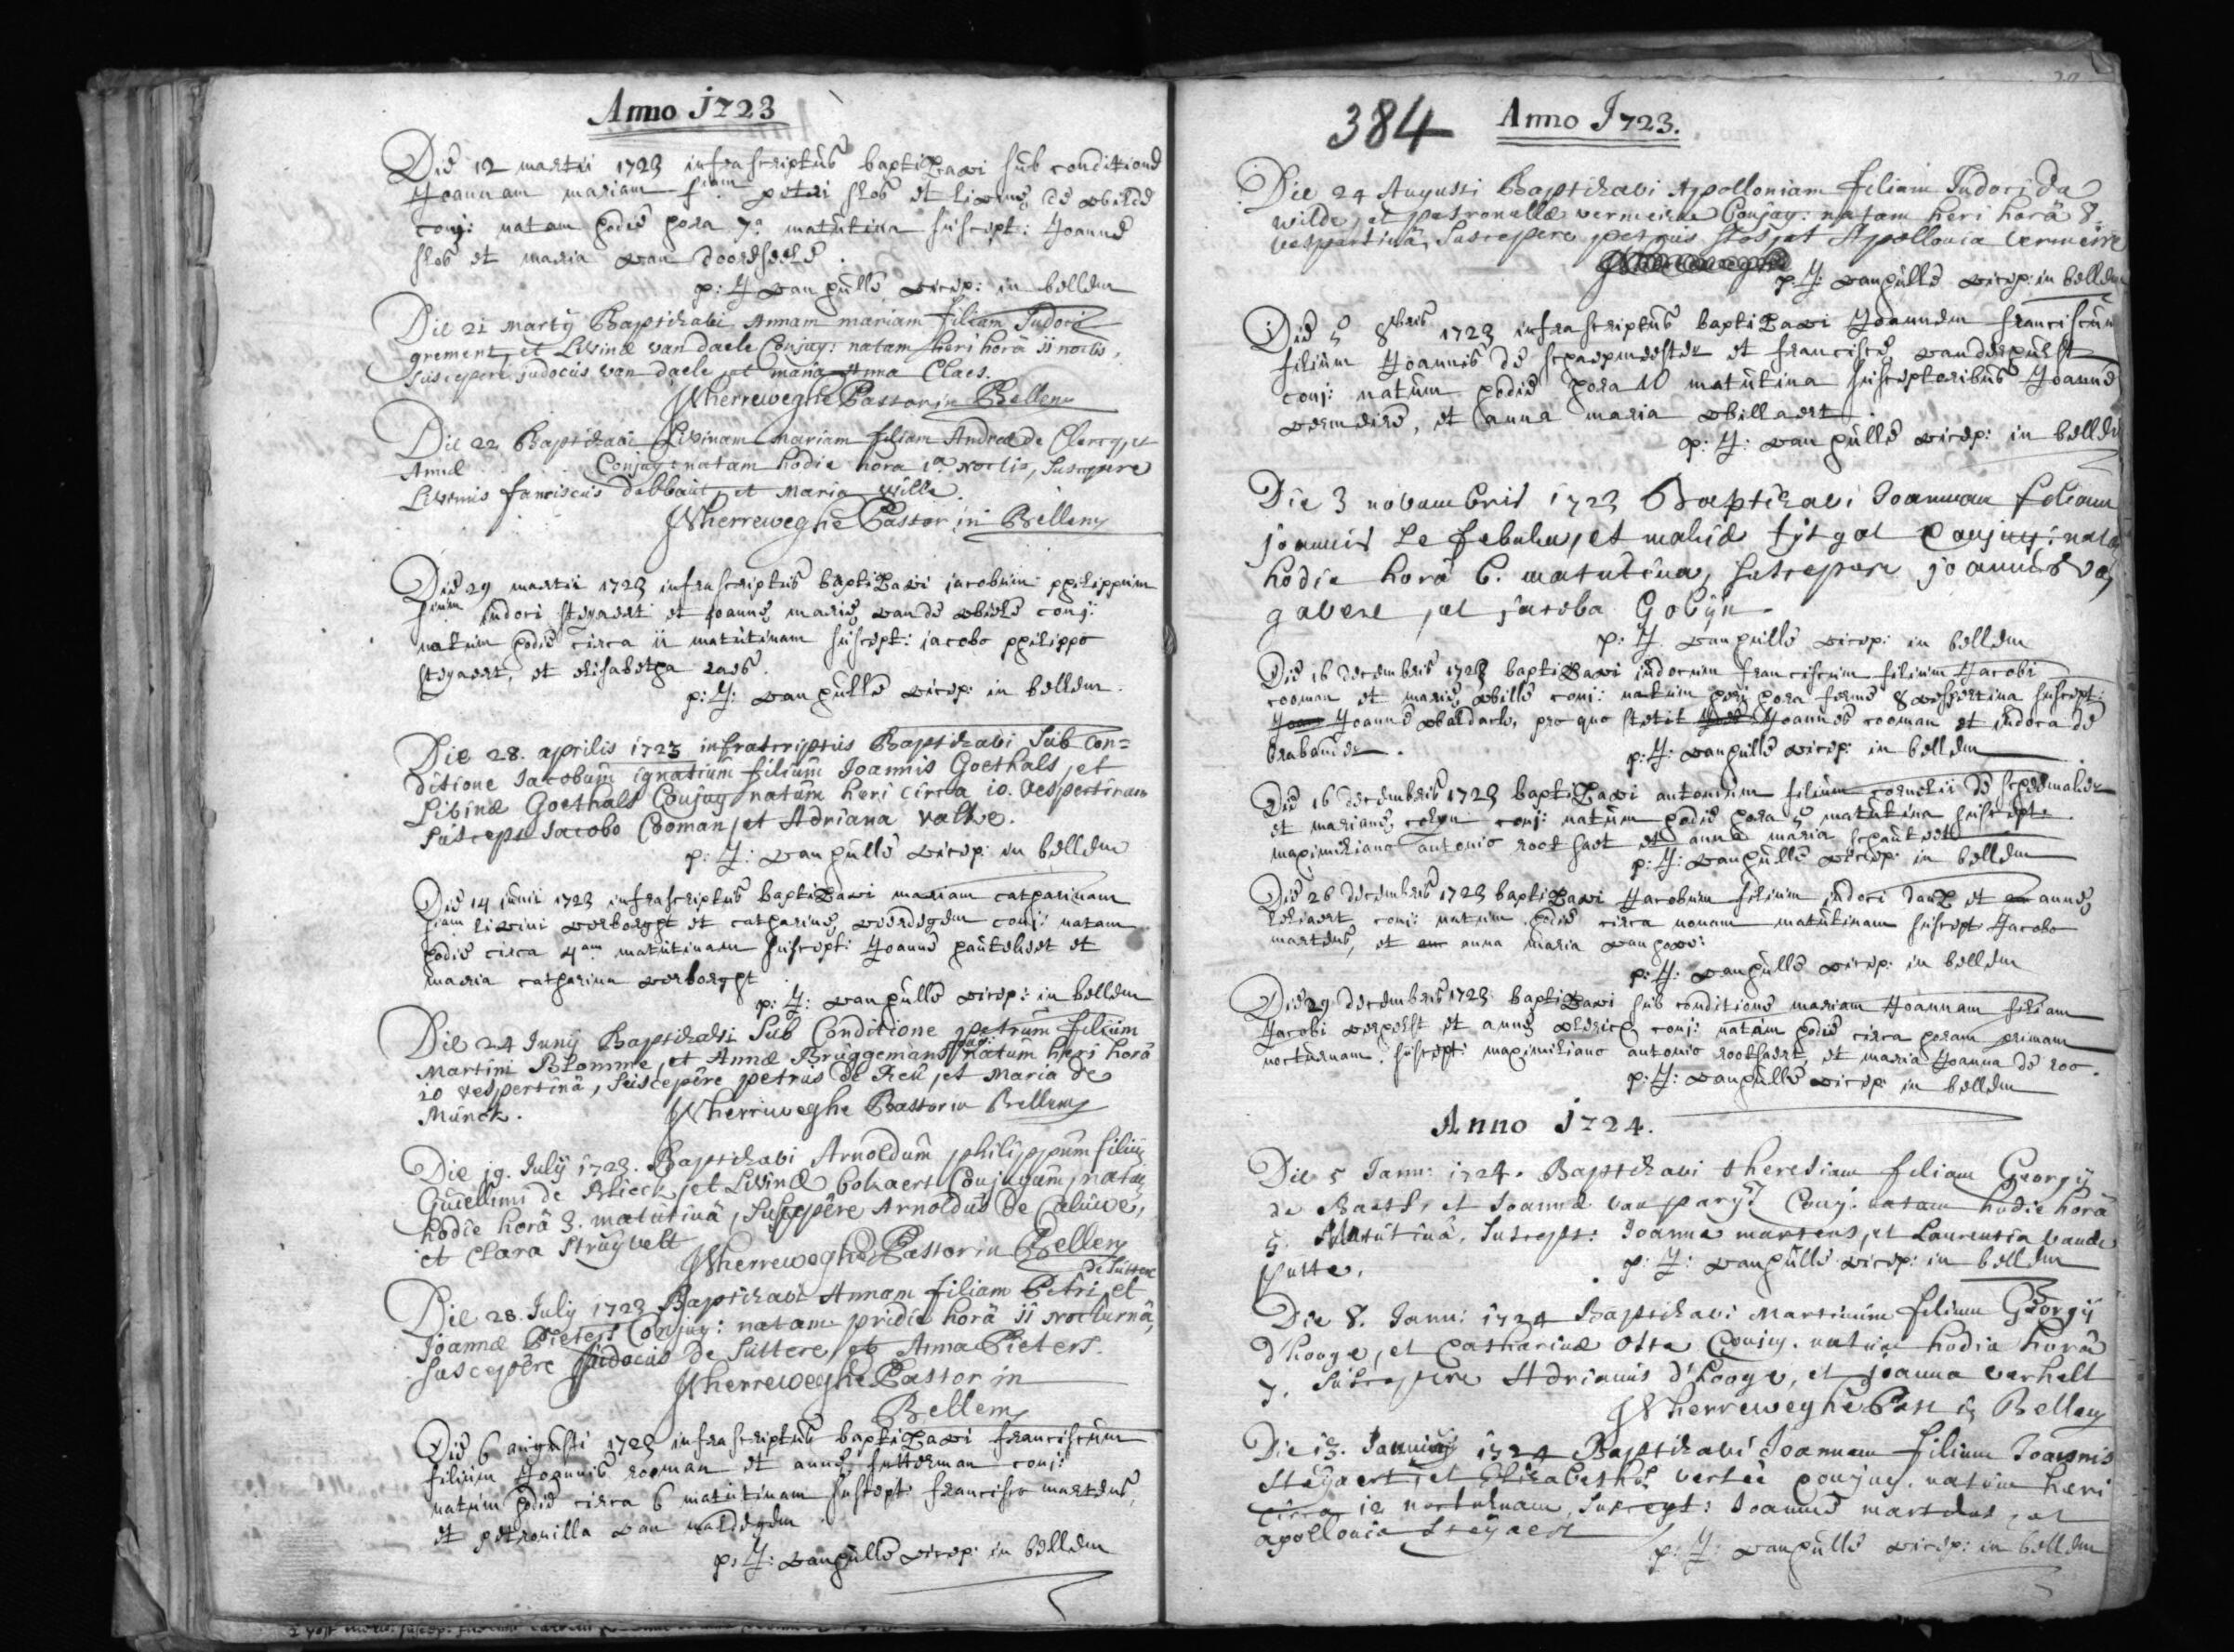 Anno 1723
Die 12 martii 1723 infrascriptus baptizavi sub conditione
Joannam mariam petri slos et livinæ de wilde
conj: natam hodie hora 7a matutina suscept: Joanne
slos et maria van doorseele.
p: J van hulle vicep: in bellem
Die 21 martij Baptizavi Annam mariam filiam Judoci
grement, et Livinæ van daele Conjug: natam heri horâ 11 noctis,
suscepere judocus van daele, et maria Anna Claes.
JVherreweghe Pastor in Bellem
Die 22 Baptizavi Livinam Mariam filiam Andreæ de Clercq, et
Annæ Conjug: natam hodie hora 1a Noctis, suscepere
Livinus franciscus dobbaut, et Maria wille.
JVherreweghe Pastor in Bellem
Die 29 martii 1723 infrascriptus baptizavi jacobum philippum
judoci steyaert et joannæ mariæ van de wiele conj:
natum hodie circa 11 matutinam suscept: jacobo philippo
steyaert, et elisabetha
p: J: van hulle vicep: in bellem.
Die 28. aprilis 1723 infrascriptus Baptizavi sub Con=
ditione Jacobum ignatium filium Joannis Goethals, et
Livinæ Goethals Conjug natum heri circa 10. Vespertinam
suscept: Jacobo Cooman, et Adriana
p: J: van hulle vicep: in bellem
Die 14 junii 1723 infrascriptus baptizavi mariam catharinam
livini verborght et catharinæ conj: natam
hodie circa 4am matutinam suscept: Joanne et
maria catharina verborght
p: J: van hulle vicep: in bellem
Die 24 Junij Baptizavi Sub Conditione petrum filium
Martini Blomme, et Annæ Bruggemans conjug: natum heri horâ
10 vespertinâ, suscepêre petrus de Reu, et Maria de
Munck. JVherreweghe Pastor in Bellem
Die 19. Julij 1723. Baptizavi Arnoldum philippum filium
Guillelmi de Blieck, et Livinæ bokaert Conjugum, natum
hodie horâ 3. matutinâ, Suscepêre Arnoldus De Caluwe,
et Clara Struyvelt JVherreweghe Pastor in Bellem
de suttere
Die 28. Julij 1723 Baptizavi Annam filiam Petri, et
Joannæ Pieters Conjug: natam pridie horâ 11 Nocturnâ,
Suscepêre judocus de Suttere, et Anna Pieters.
JVherreweghe Pastor in
Bellem
Die 6 augusti 1723 infrascriptus baptizavi franciscum
filium Joannis rooman et annæ sutterman conj:
natum hodie circa 6 matutinam suscept: francisco martens,
et petronilla van maldegem
p: J: van hulle vicep: in bellem
384 Anno 1723.
Die 24 Augusti Baptizavi Apolloniam filiam Judoci de
wilde, et petronellæ vermeire Conjug: natam heri horâ 8.
vespertinâ, Suscepere petrus slos, et Apollonia vermeire
p: J: van hulle vicep: in bellem
Die 5 8bris 1723 infrascriptus baptizavi Joannem franciscum
filium Joannis de schaepmeester et franciscæ vanderhulst
conj: natum hodie hora 10 matutina susceptoribus Joanne
vermeire, et anna maria willaert.
p: J: van hulle vicep: in bellem
Die 3 novembris 1723 Baptizavi Joannam filiam
joannis Le febubu, et mariæ tytgat Conjug: natam
hodie horâ 6. matutina, suscepere joannes van
gavere, et jacoba Gobijn.
p: J. van hulle vicep: in bellem
Die 16 decembris 1723 baptizavi judocum franciscum filium Jacobi
cooman et mariæ wille conj: natum heri hora ferme 8 vespertina suscept:
Joanne waldack, pro quo stetit Joannes cooman et judoca de
brabander.
p: J: van hulle vicep: in bellem
Die 16 decembris 1723 baptizavi antonium filium cornelii de scheemaker
et marianæ conj: natum hodie hora 5 matutina suscept:
maximiliano antonio rootsaert et anna maria schauteet
p: J: van hulle vicep: in bellem
Die 26 decembris 1723 baptizavi Jacobum filium judoci et annæ
conj: natum hodie circa nonam matutinam suscept: Jacobo
martens, et anna maria van hove:
p: J: van hulle vicep: in bellem
Die 29 decembris 1723 baptizavi sub conditione mariam Joannam filiam
Jacobi verhelst et annæ conj: natam hodie circa horam primam
nocturnam. suscept: maximiliano antonio rootsaert, et maria Joanna de roo.
p: J: van hulle vicep: in bellem
Anno 1724.
Die 5 Janu: 1724. Baptizavi theresiam filiam Georgij
de Baets, et Joannæ van parys Conj. natam hodie horâ
5. Matutinâ, Suscept: Joanne martens, et Laurentia vande
putte.
p: J: van hulle vicep: in bellem
Die 8. Janu: 1724 Baptizavi Martinum filium Georgij
d'hooge, et Catharinæ Otte Conjug. natum hodie horâ
7. Suscepere Adrianus d'hooge, et joanna verhelt
JVherreweghe Past in Bellem
Die 13. Januarij 1724 Baptizavi Joannem filium Joannis
steyaert, et Elizabethæ conjug. natum heri
circa 12 nocturnam, suscept: Joanne martens, et
apollonia steyaert
p: J: van hulle vicep: in bellem